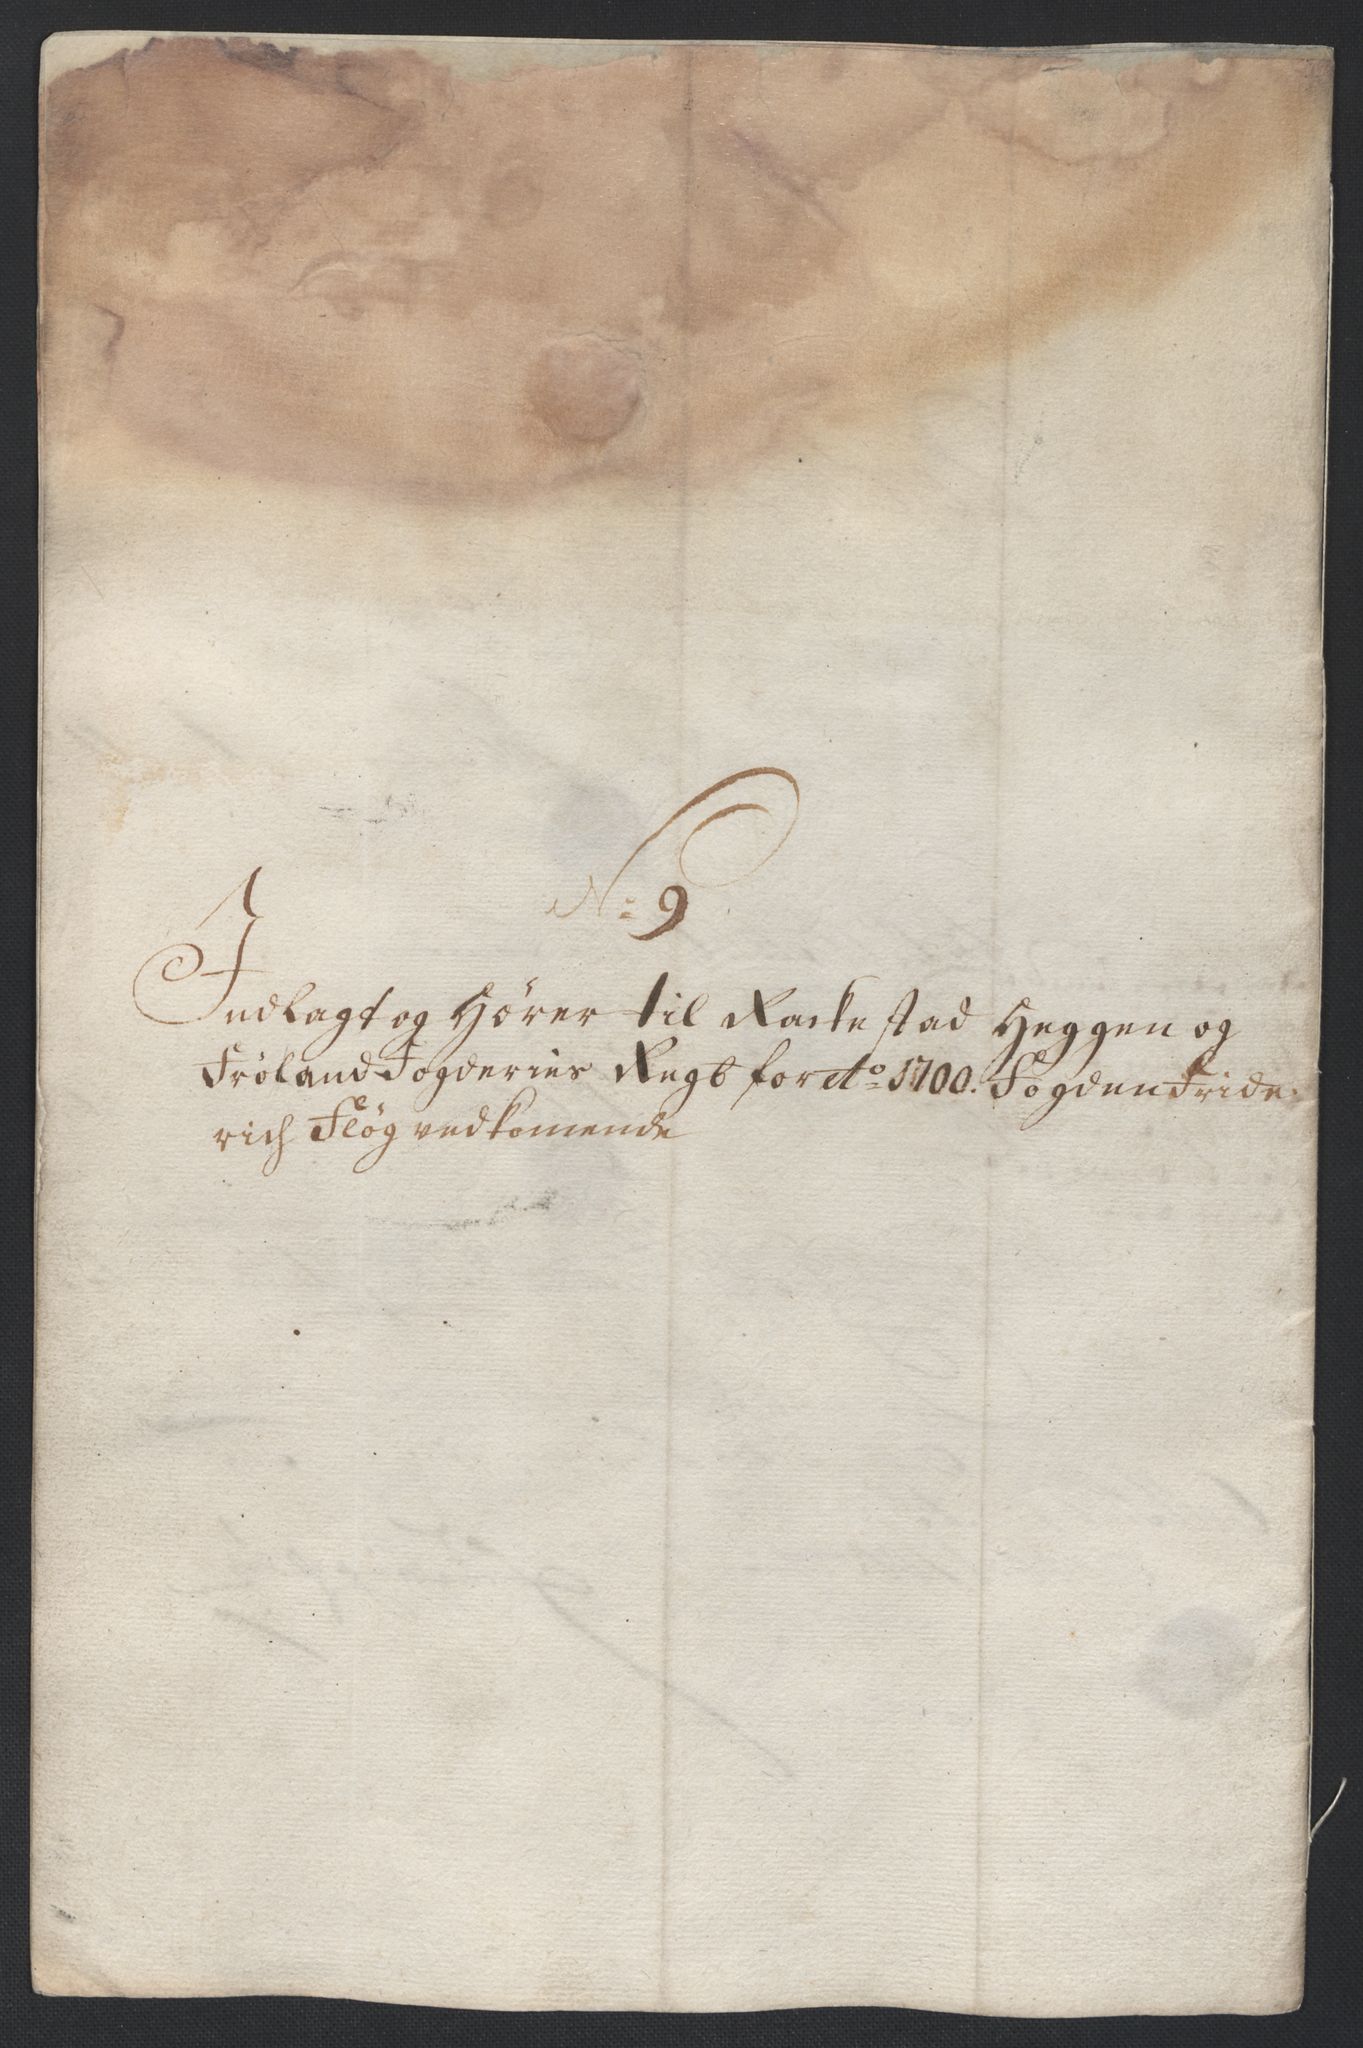 No: 9
Indlagt og Hører til Rackestad Heggen og
Frøland Fogderies Regb for Ao: 1700. Fogden Fride-
rich Fløg vedkomende